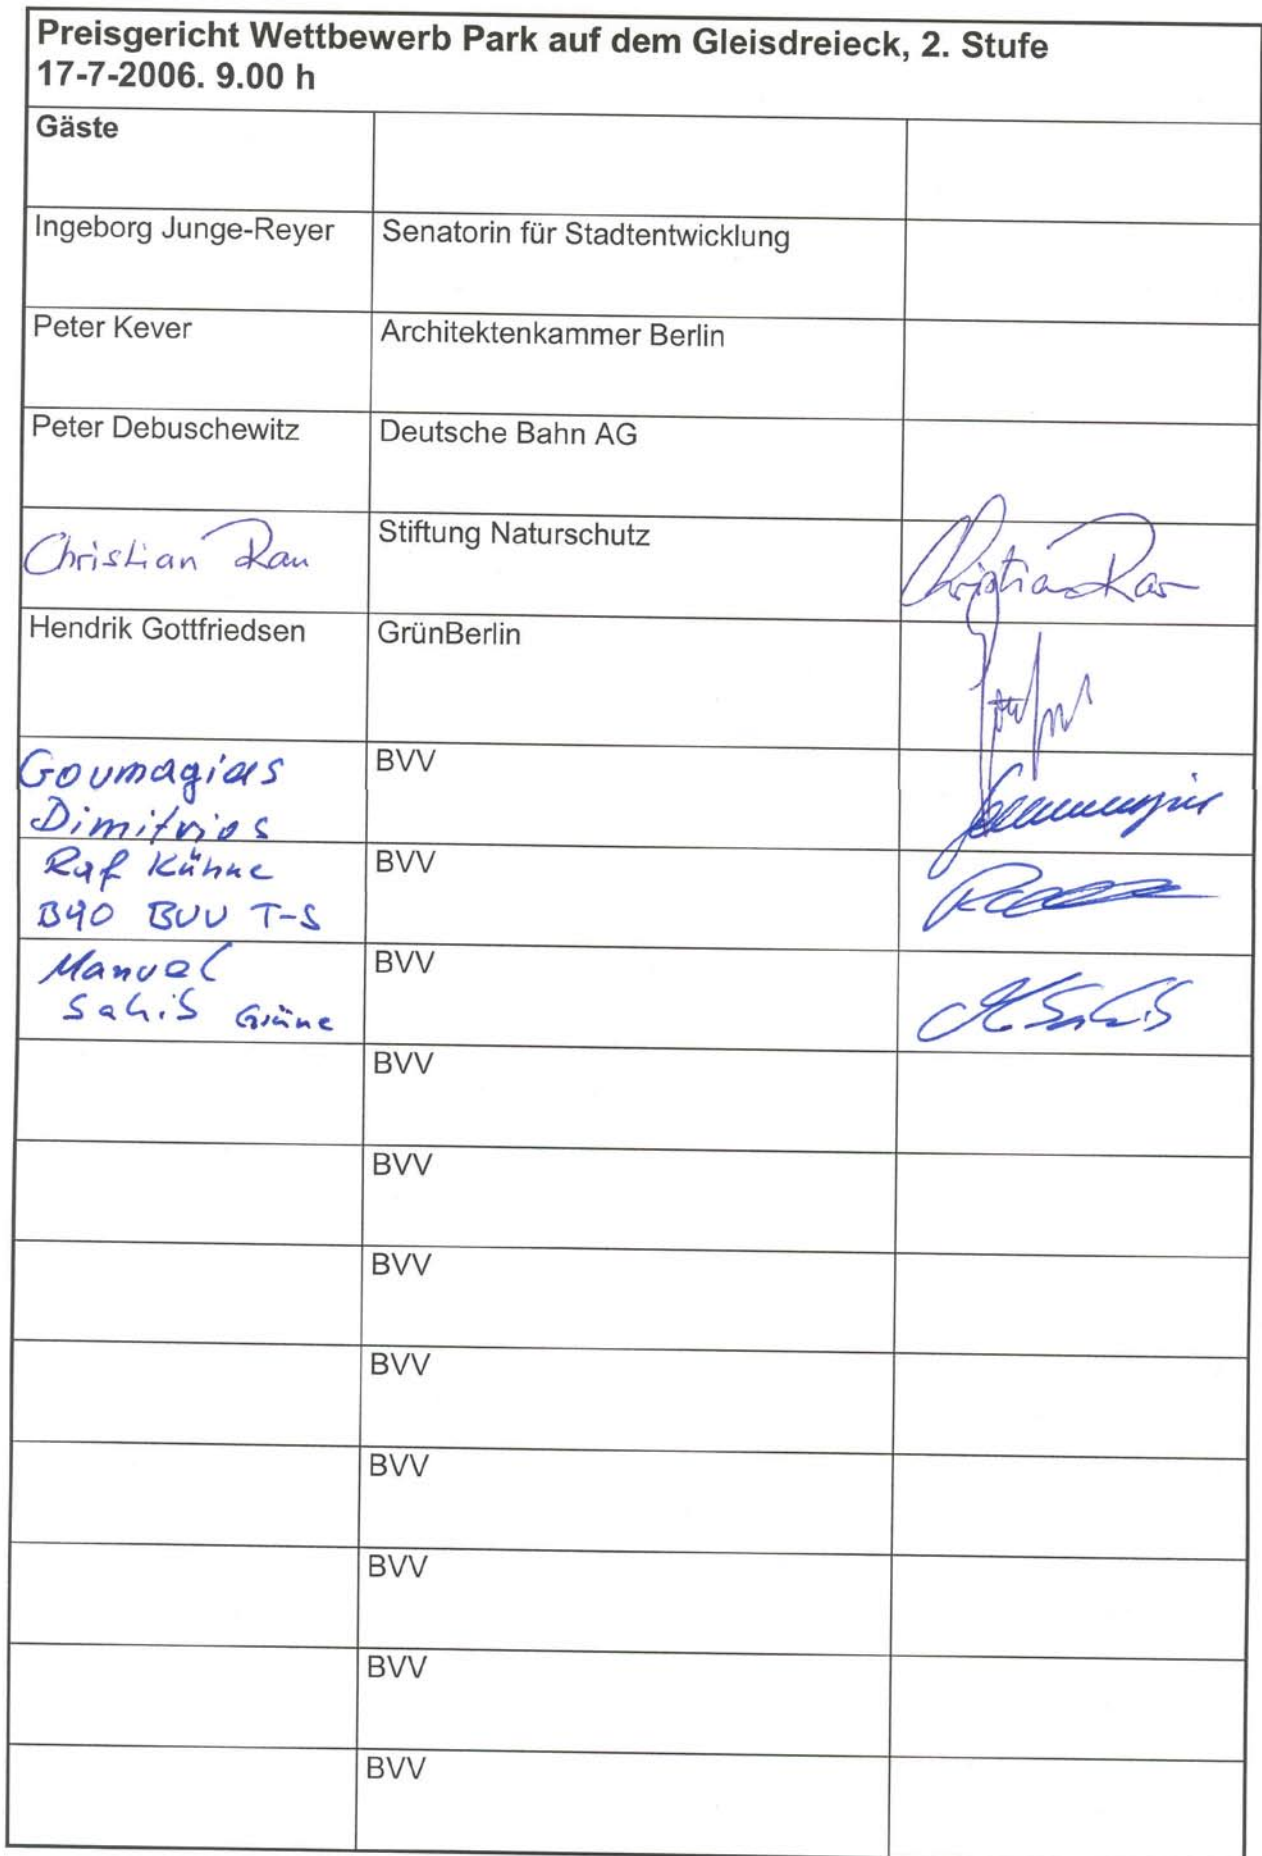 Preisgericht Wettbewerb Park auf dem Gleisdreieck, 2. Stufe
17-7-2006. 9.00 h
Gäste
Ingeborg Junge-Reyer Senatorin für Stadtentwicklung
Peter Kever Architektenkammer Berlin
Peter Debuschewitz Deutsche Bahn AG
Christian Rau Stiftung Naturschutz Christian Rau
Hendrik Gottfriedsen GrünBerlin
Goumagias BVV
Dimitrios
Ralf Kühne BVV
B90 BVV T-S
Manuel BVV
Sahib Grüne
BVV
BVV
BVV
BVV
BVV
BVV
BVV
BVV